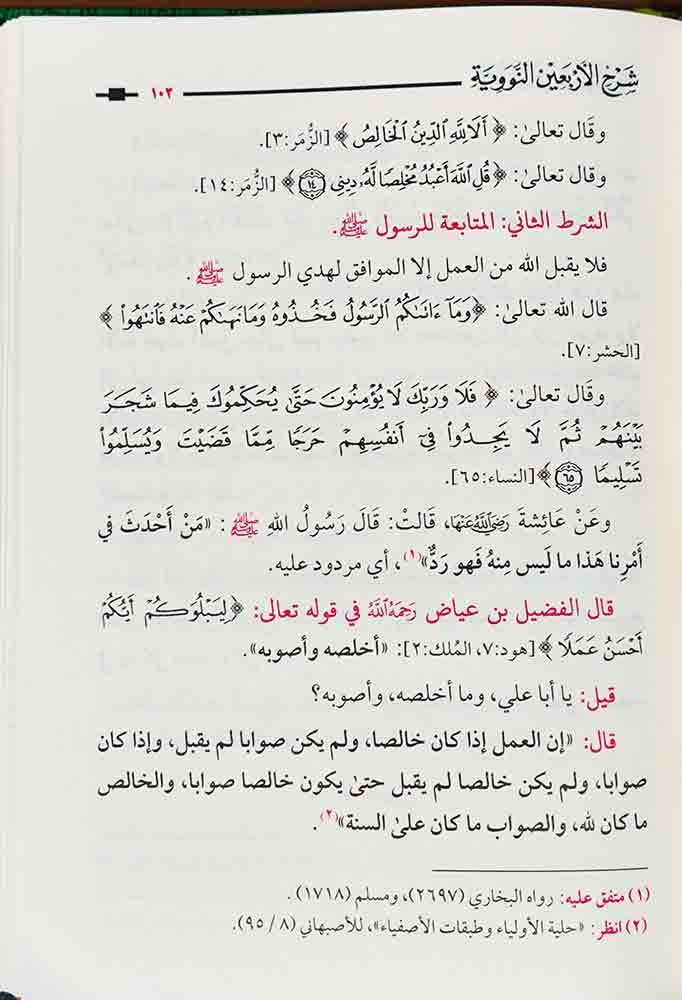 شَرْحُ الأَرْبَعِين النَّوَوِيَّةِ ١٠٣
وقَال تعالىٰ: ﴿ أَلَا لِلَّهِ الدِّينُ الْخَالِصُ ﴾ [الزُّمَر:٣].
وقَال تعالىٰ: ﴿قُلِ اللَّهَ أَعْبُدُ مُخْلِصًا لَّهُ دِينِي ١٤﴾ [الزُّمَر:١٤].
الشرط الثاني: المتابعة للرسول ﷺ.
فلا يقبل الله من العمل إلا الموافق لهدي الرسول ﷺ.
قال الله تعالىٰ: ﴿وَمَا ءَاتَاكُمُ الرَّسُولُ فَخُذُوهُ وَمَا نَهَاكُمْ عَنْهُ فَانتَهُوا ﴾
[الحشر:٧].
وقَال تعالىٰ: ﴿ فَلَا وَرَبِّكَ لَا يُؤْمِنُونَ حَتَّىٰ يُحَكِّمُوكَ فِيمَا شَجَرَ
بَيْنَهُمْ ثُمَّ لَا يَجِدُوا فِي أَنفُسِهِمْ حَرَجًا مِّمَّا قَضَيْتَ وَيُسَلِّمُوا
تَسْلِيمًا ٦٥﴾ [النساء:٦٥].
وعَنْ عَائِشَةَ رَضِيَ اللَّهُ عَنْهَا، قَالتْ: قَالَ رَسُولُ اللهِ ﷺ: «مَنْ أَحْدَثَ في
أَمْرِنا هَذا ما لَيس مِنهُ فَهو رَدٌّ»(١)، أي مردود عليه.
قال الفضيل بن عياض رَحِمَهُ اللَّهُ في قوله تعالى: ﴿لِيَبْلُوَكُمْ أَيُّكُمْ
أَحْسَنُ عَمَلًا ﴾ [هود:٧، المُلك:٢]: «أخلصه وأصوبه».
قيل: يا أبا علي، وما أخلصه، وأصوبه؟
قال: «إن العمل إذا كان خالصا، ولم يكن صوابا لم يقبل، وإذا كان
صوابا، ولم يكن خالصا لم يقبل حتىٰ يكون خالصا صوابا، والخالص
ما كان لله، والصواب ما كان علىٰ السنة»(٢).
(١) متفق عليه: رواه البخاري (٢٦٩٧)، ومسلم (١٧١٨).
(٢) انظر: «حلية الأولياء وطبقات الأصفياء»، للأصبهاني (٨/ ٩٥).